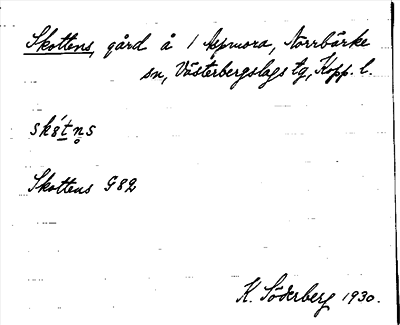 Skottens, gård å 1 Aspmora, Norrbärke
sn, Västerbergslags tg, Kopp. l.
Skottens G82
K. Söderberg 1930.